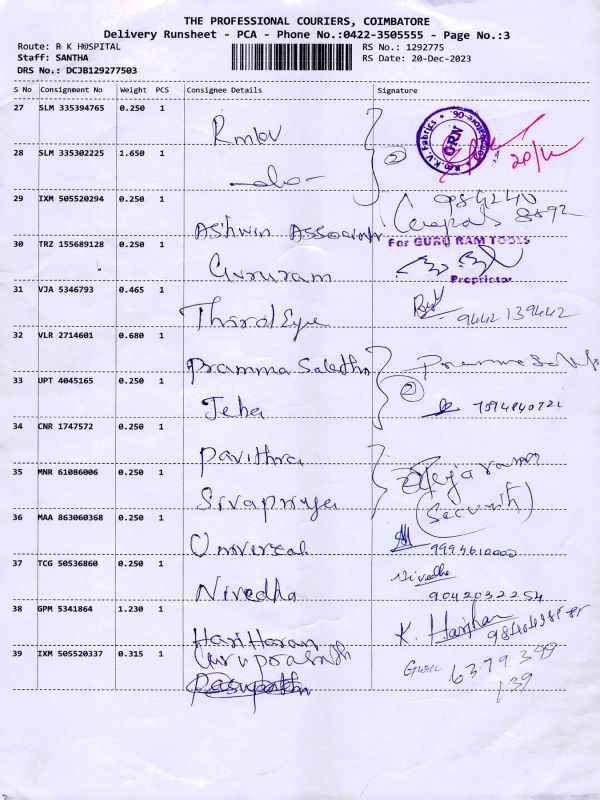 THE PROFESSIONAL COURIERS, COIMBATORE
Delivery Runsheet - PCA - Phone No.:0422-3505555 - Page No.:3
Route: R K HOSPITAL
RS No.: 1292775
Staff: SANTHA
RS Date: 20-Dec-2023
DRS No.: DCJB129277503
S No Consignment No Weight PCS Consignee Details Signature
27 SLM 335394765 0.250 1
28 SLM 335302225 1.650 1 -do- 2 20/12
R.K.V. Fabrics GRN
29 IXM 505520294 0.250 1 Ashwin
For GURU RAM TOOLS
30 TRZ 155689128 0.250 1 Gururam
Proprietor
31 VJA 5346793 0.465 1 Third Eye 9442139442
32 VLR 2714601 0.680 1 Pramma
33 UPT 4045165 0.250 1 2
34 CNR 1747572 0.250 1 Pavithra
35 MNR 61086006 0.250 1 Sivapriya (Security)
36 MAA 863060368 0.250 1 Universal
37 TCG 50536860 0.250 1 Nivedha Nivedha
9042032254
38 GPM 5341864 1.230 1 Hariharan K. Hariharan
39 IXM 505520337 0.315 1 Guruprasath 6379399
139